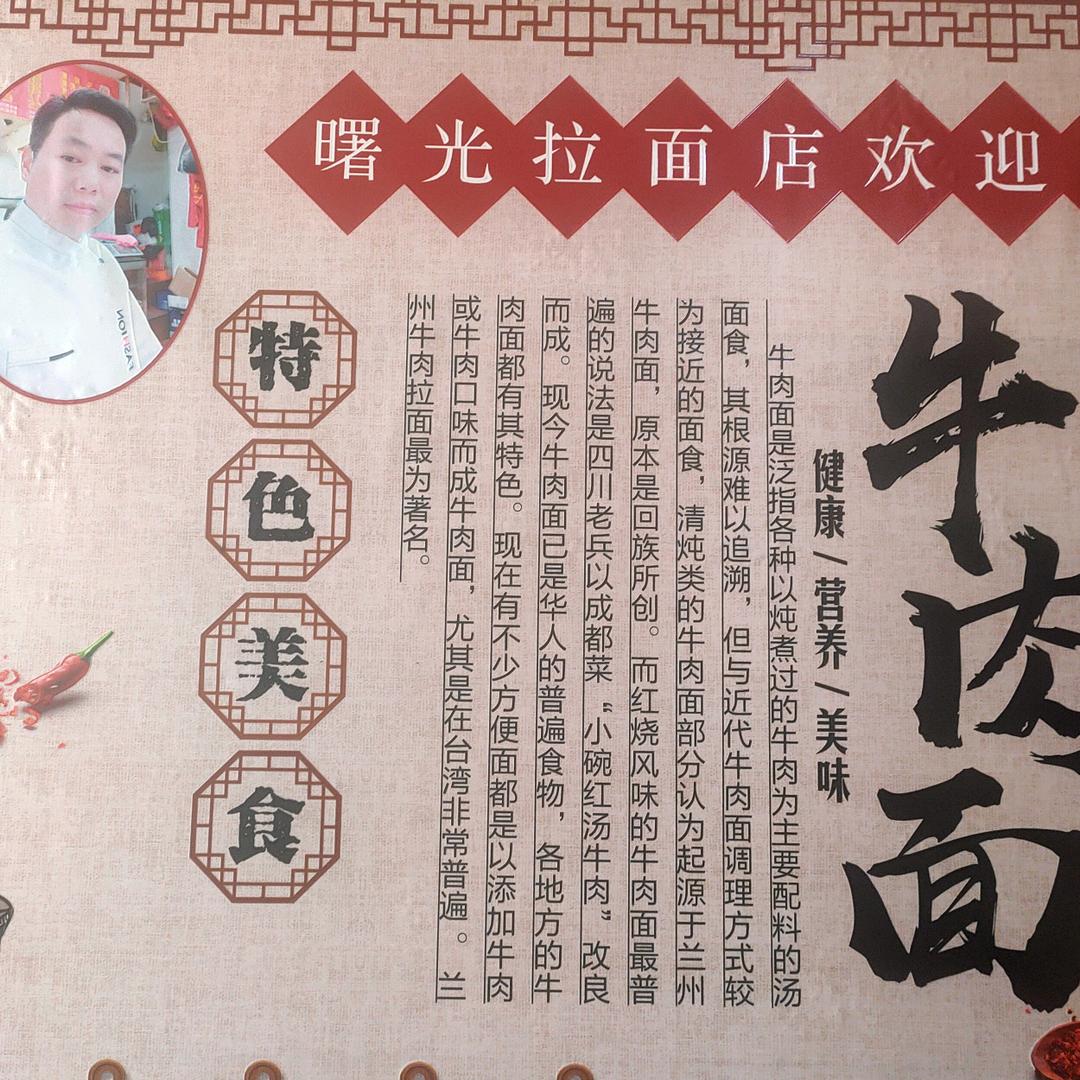 曙光拉面店欢迎
牛肉面
健康/营养/美味
牛肉面是泛指各种以炖煮过的牛肉为主要配料的汤
面食，其根源难以追溯，但与近代牛肉面调理方式较
为接近的面食，清炖类的牛肉面部分认为起源于兰州
牛肉面，原本是回族所创。而红烧风味的牛肉面最普
遍的说法是四川老兵以成都菜“小碗红汤牛肉”改良
而成。现今牛肉面已是华人的普遍食物，各地方的牛
肉面都有其特色。现在有不少方便面都是以添加牛肉
或牛肉口味而成牛肉面，尤其是在台湾非常普遍。兰
州牛肉拉面最为著名。
特色美食
FASHION